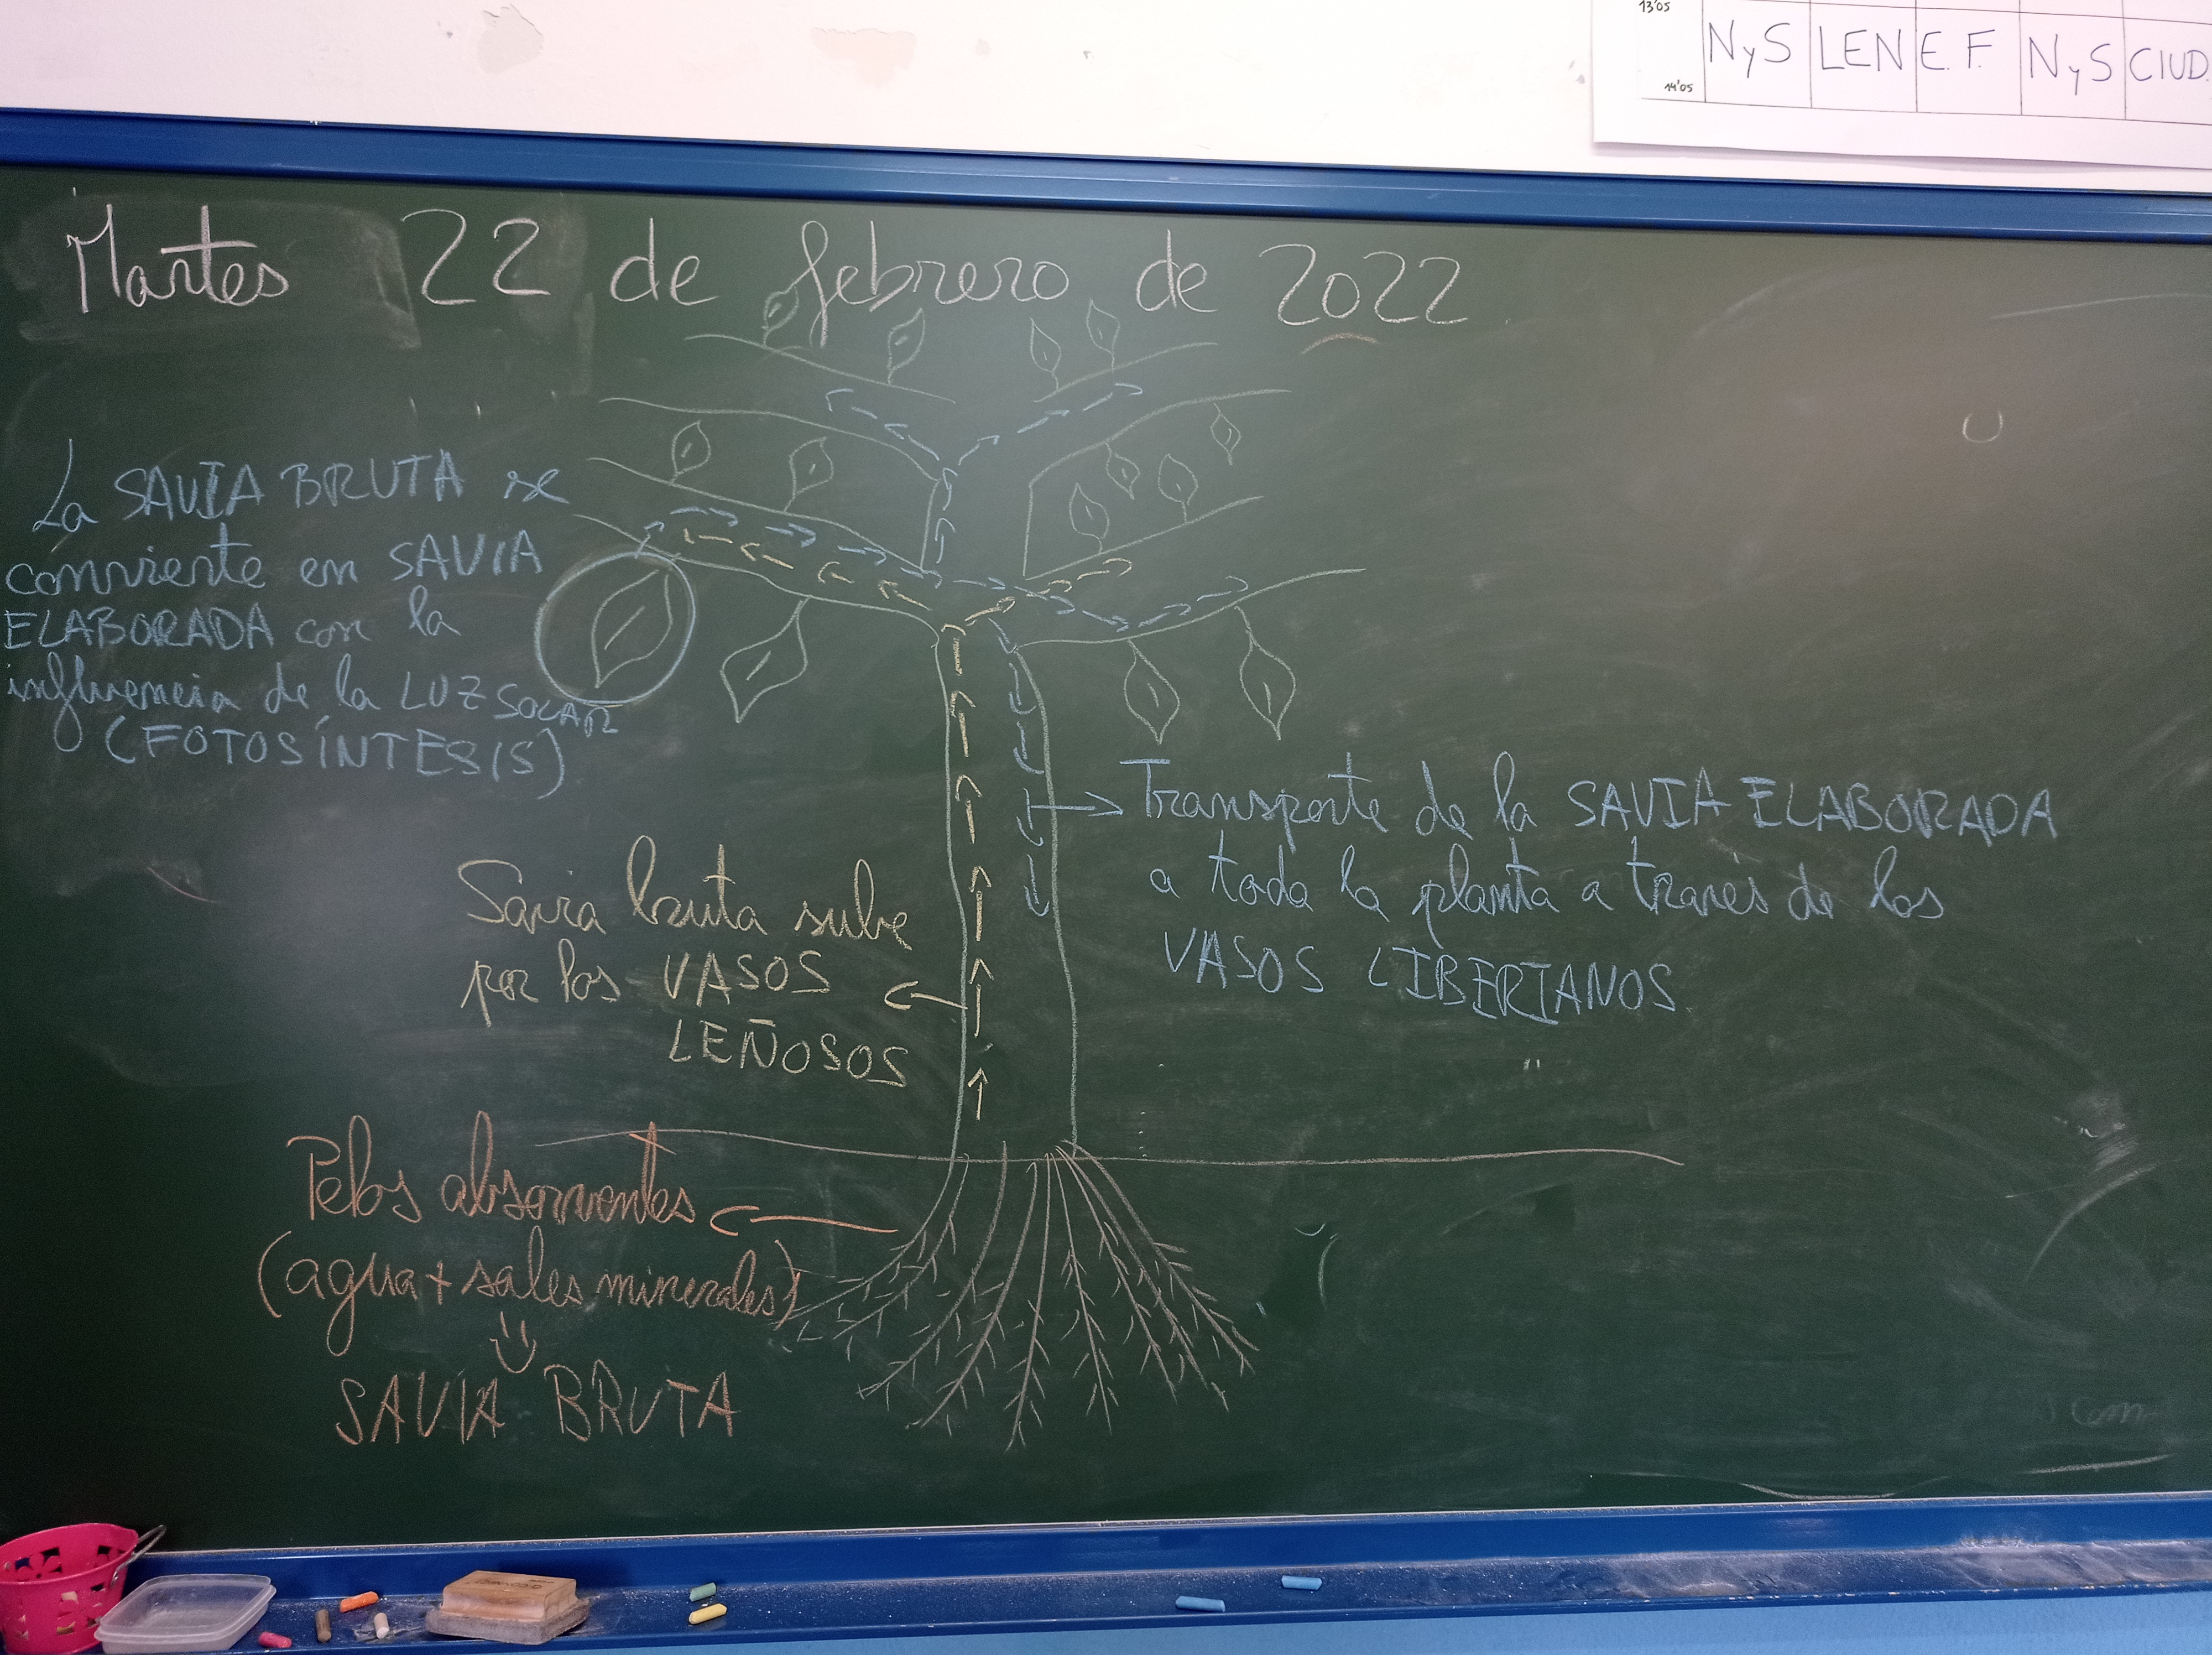 13'05
NyS LEN E.F. NyS CIUD.
14'05
Martes 22 de febrero de 2022
La SAVIA BRUTA se
convierte en SAVIA
ELABORADA con la
influencia de la LUZ SOLAR
(FOTOSÍNTESIS)
Transporte de la SAVIA ELABORADA
a toda la planta a través de los
VASOS LIBERIANOS
Savia bruta sube
por los VASOS
LEÑOSOS
Pelos absorventes
(agua + sales minerales)
SAVIA BRUTA